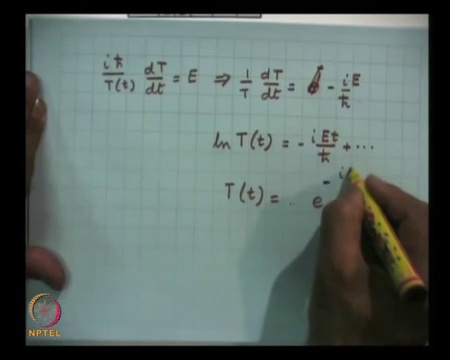 iħ/T(t) dT/dt = E ⇒ 1/T dT/dt = - iE/ħ
ln T(t) = - iEt/ħ + ...
T(t) = e^{-i
NPTEL